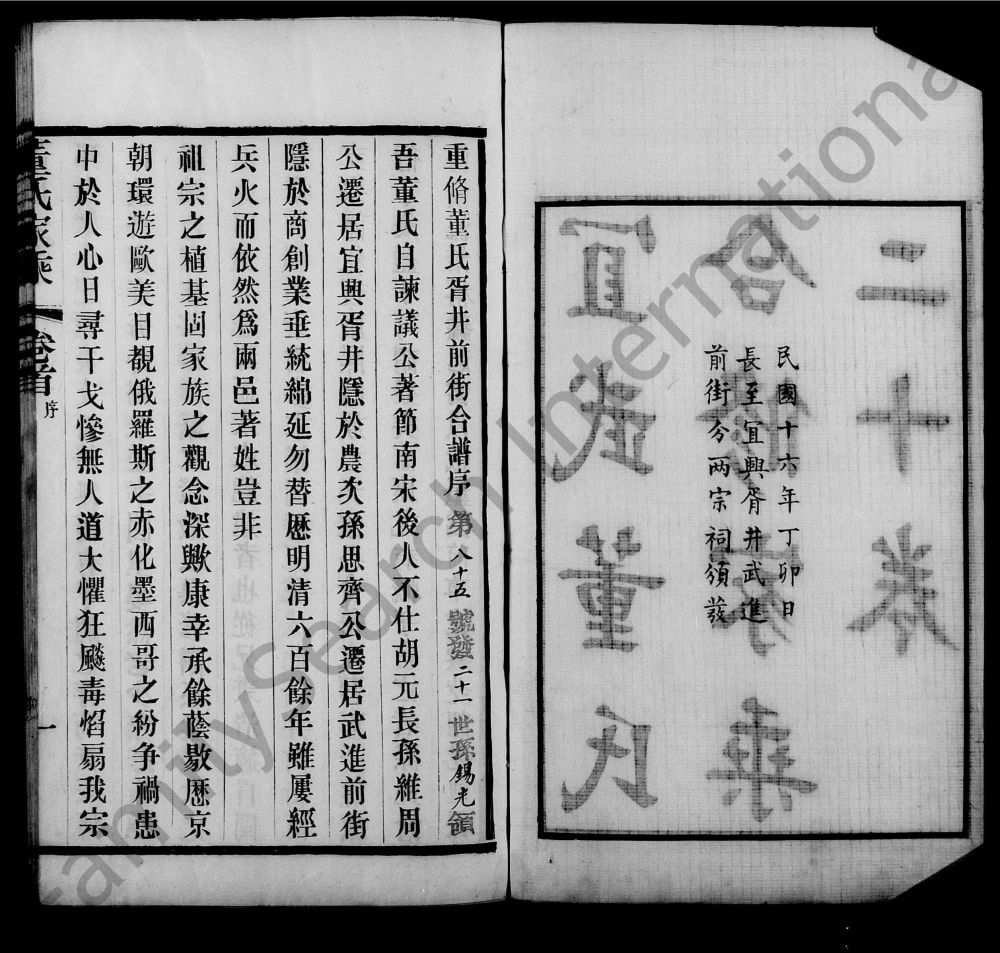 二十卷
民國十六年丁卯日
長至宜興胥井武進
前街分两宗祠頒發
董氏
重脩董氏胥井前街合譜序 第八十五號發二十一世孫錫光領
吾董氏自諫議公著節南宋後人不仕胡元長孫維周
公遷居宜興胥井隱於農次孫思齊公遷居武進前街
隱於商創業垂統綿延勿替歷明清六百餘年雖屢經
兵火而依然爲兩邑著姓豈非
祖宗之植基固家族之觀念深歟康幸承餘蔭敭歷京
朝環遊歐美目覩俄羅斯之赤化墨西哥之紛争禍患
中於人心日尋干戈慘無人道大懼狂飈毒焰扇我宗
董氏家乘 卷首 序 一
FamilySearch International